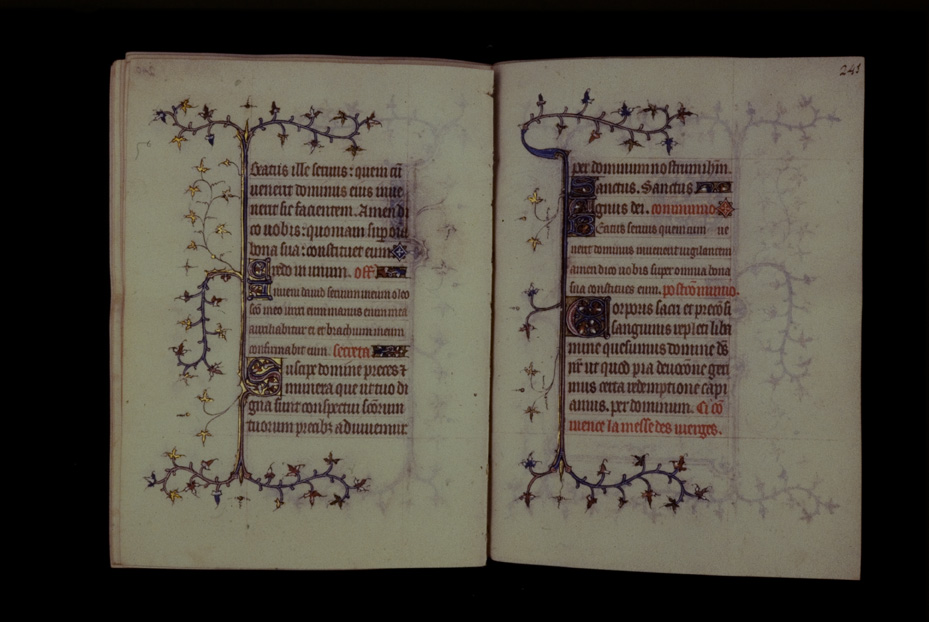 Beatus ille seruus: quem cū
uenerit dominus eius inue
nerit sic facientem. Amen di
co uobis: quoniam super oīa
bona sua: constituet eum
Credo in unum. off
Inueni dauid seruum meum oleo
sc̄o meo unxi eum manus enim mea
auxiliabitur ei et brachium meum
confirmabit eum. secreta
Suscipe domine preces ⁊
munera que ut tuo di
gna sunt conspectui sc̄orum
tuorum precibꝫ adiuuemur.
241
per dominum nostrum ihm̄.
Sanctus. Sanctus
Agnus dei. cōmunio
Beatus seruus quem cum ue
nerit dominus inuenerit uigilantem
amen dico uobis super omnia bona
sua constituet eum. postcōmunio.
Corporis sacri et preciosi
sanguinis repleti liba
mine quesumus domine ds̄
nr̄ ut quod pia deuocōne geri
mus certa redemptione capi
amus. per dominum. Ci cō
mence la messe des uierges.